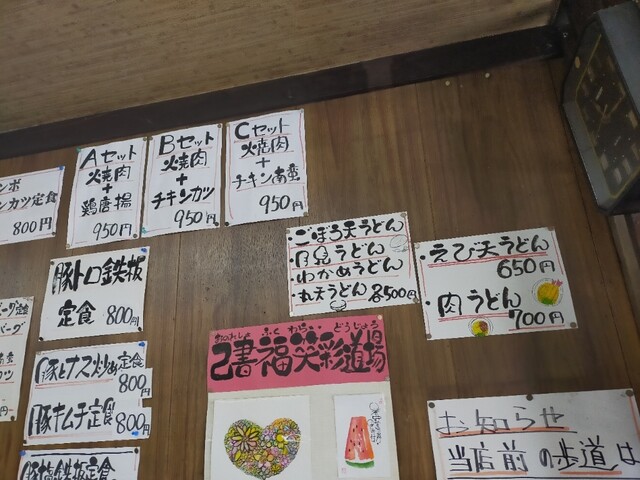 Aセット
焼肉
+
鶏唐揚
950円
Bセット
焼肉
+
チキンカツ
950円
Cセット
焼肉
+
チキン南蛮
950円
カツ定食
800円
豚トロ鉄板
定食 800円
豚とナス炒め定食
800円
豚キムチ定食 800円
豚塩鉄板定食
・ごぼう天うどん
・月見うどん
・わかめうどん
・丸天うどん 各500円
・えび天うどん
650円
・肉うどん
700円
ふく わらい どうじょう
己書福笑彩道場
お知らせ
当店前の歩道は